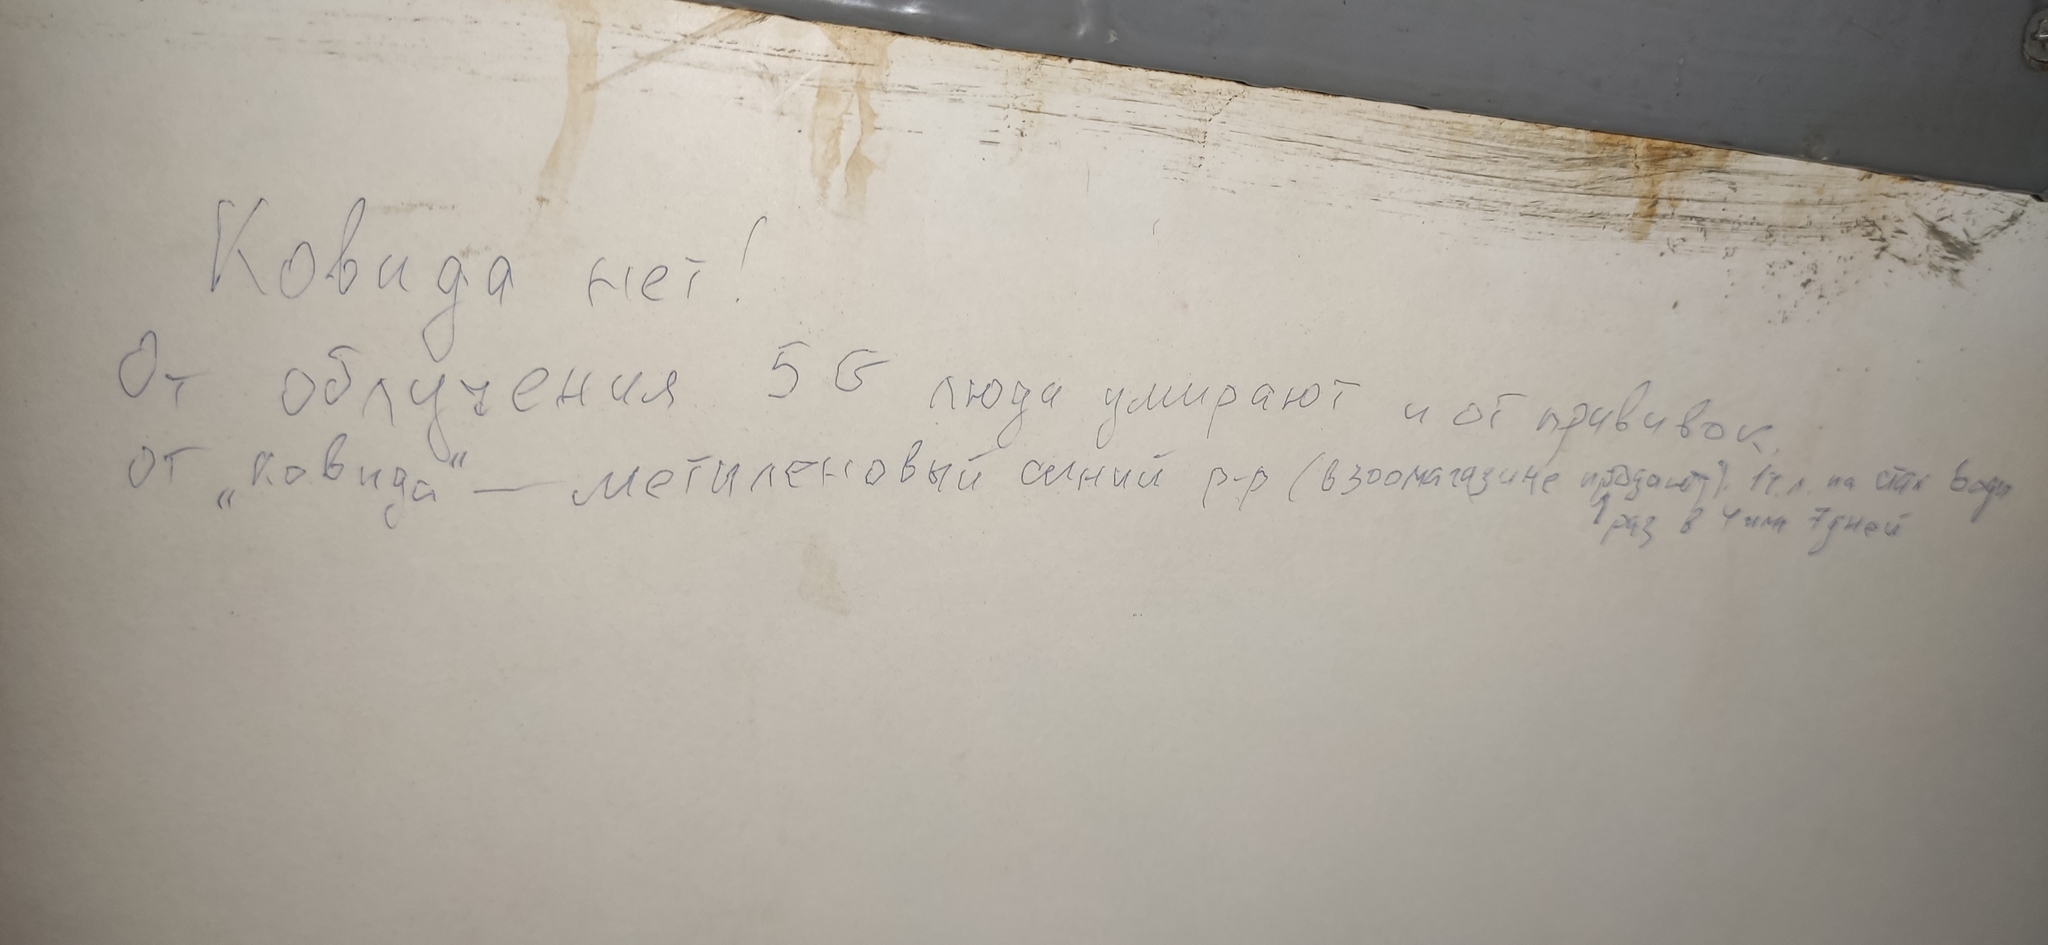 Ковида нет!
От облучения 5G люди умирают и от прививок
от „ковида" — метиленовый синий р-р (в зоомагазине продают). 1ч.л. на стак воды
1 раз в 4 или 7 дней